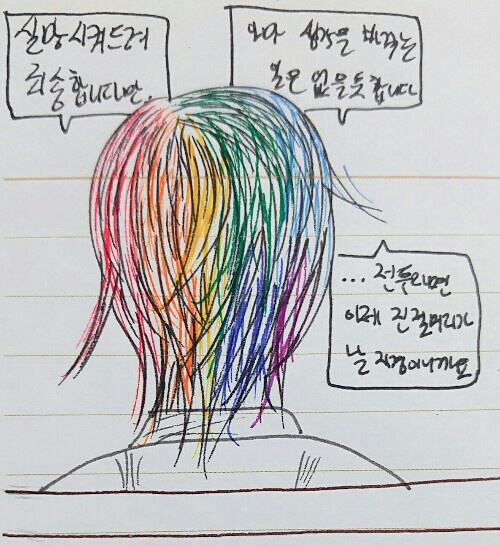 실망시켜드려
죄송합니다만.
아마 생각을 바꾸는
일은 없을듯 합니다
... 전투라면
이제 진절머리가
날 지경이니까요